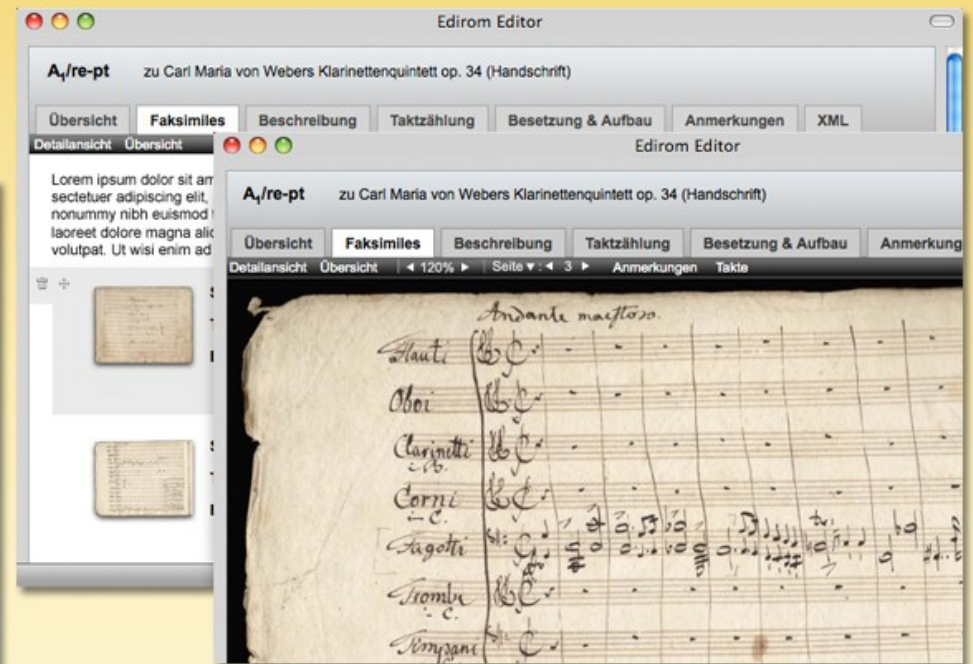 Edirom Editor
A₁/re-pt zu Carl Maria von Webers Klarinettenquintett op. 34 (Handschrift)
Übersicht Faksimiles Beschreibung Taktzählung Besetzung & Aufbau Anmerkungen XML
Detailansicht Übersicht
Lorem ipsum dolor sit am
sectetuer adipiscing elit,
nonummy nibh euismod
laoreet dolore magna alic
volutpat. Ut wisi enim ad
Edirom Editor
A₁/re-pt zu Carl Maria von Webers Klarinettenquintett op. 34 (Handschrift)
Übersicht Faksimiles Beschreibung Taktzählung Besetzung & Aufbau Anmerkung
Detailansicht Übersicht 120% Seite : 3 Anmerkungen Takte
Andante maestoso.
Flauti
Oboi
Clarinetti
Corni
in C.
Fagotti
Trombe
in C.
Timpani